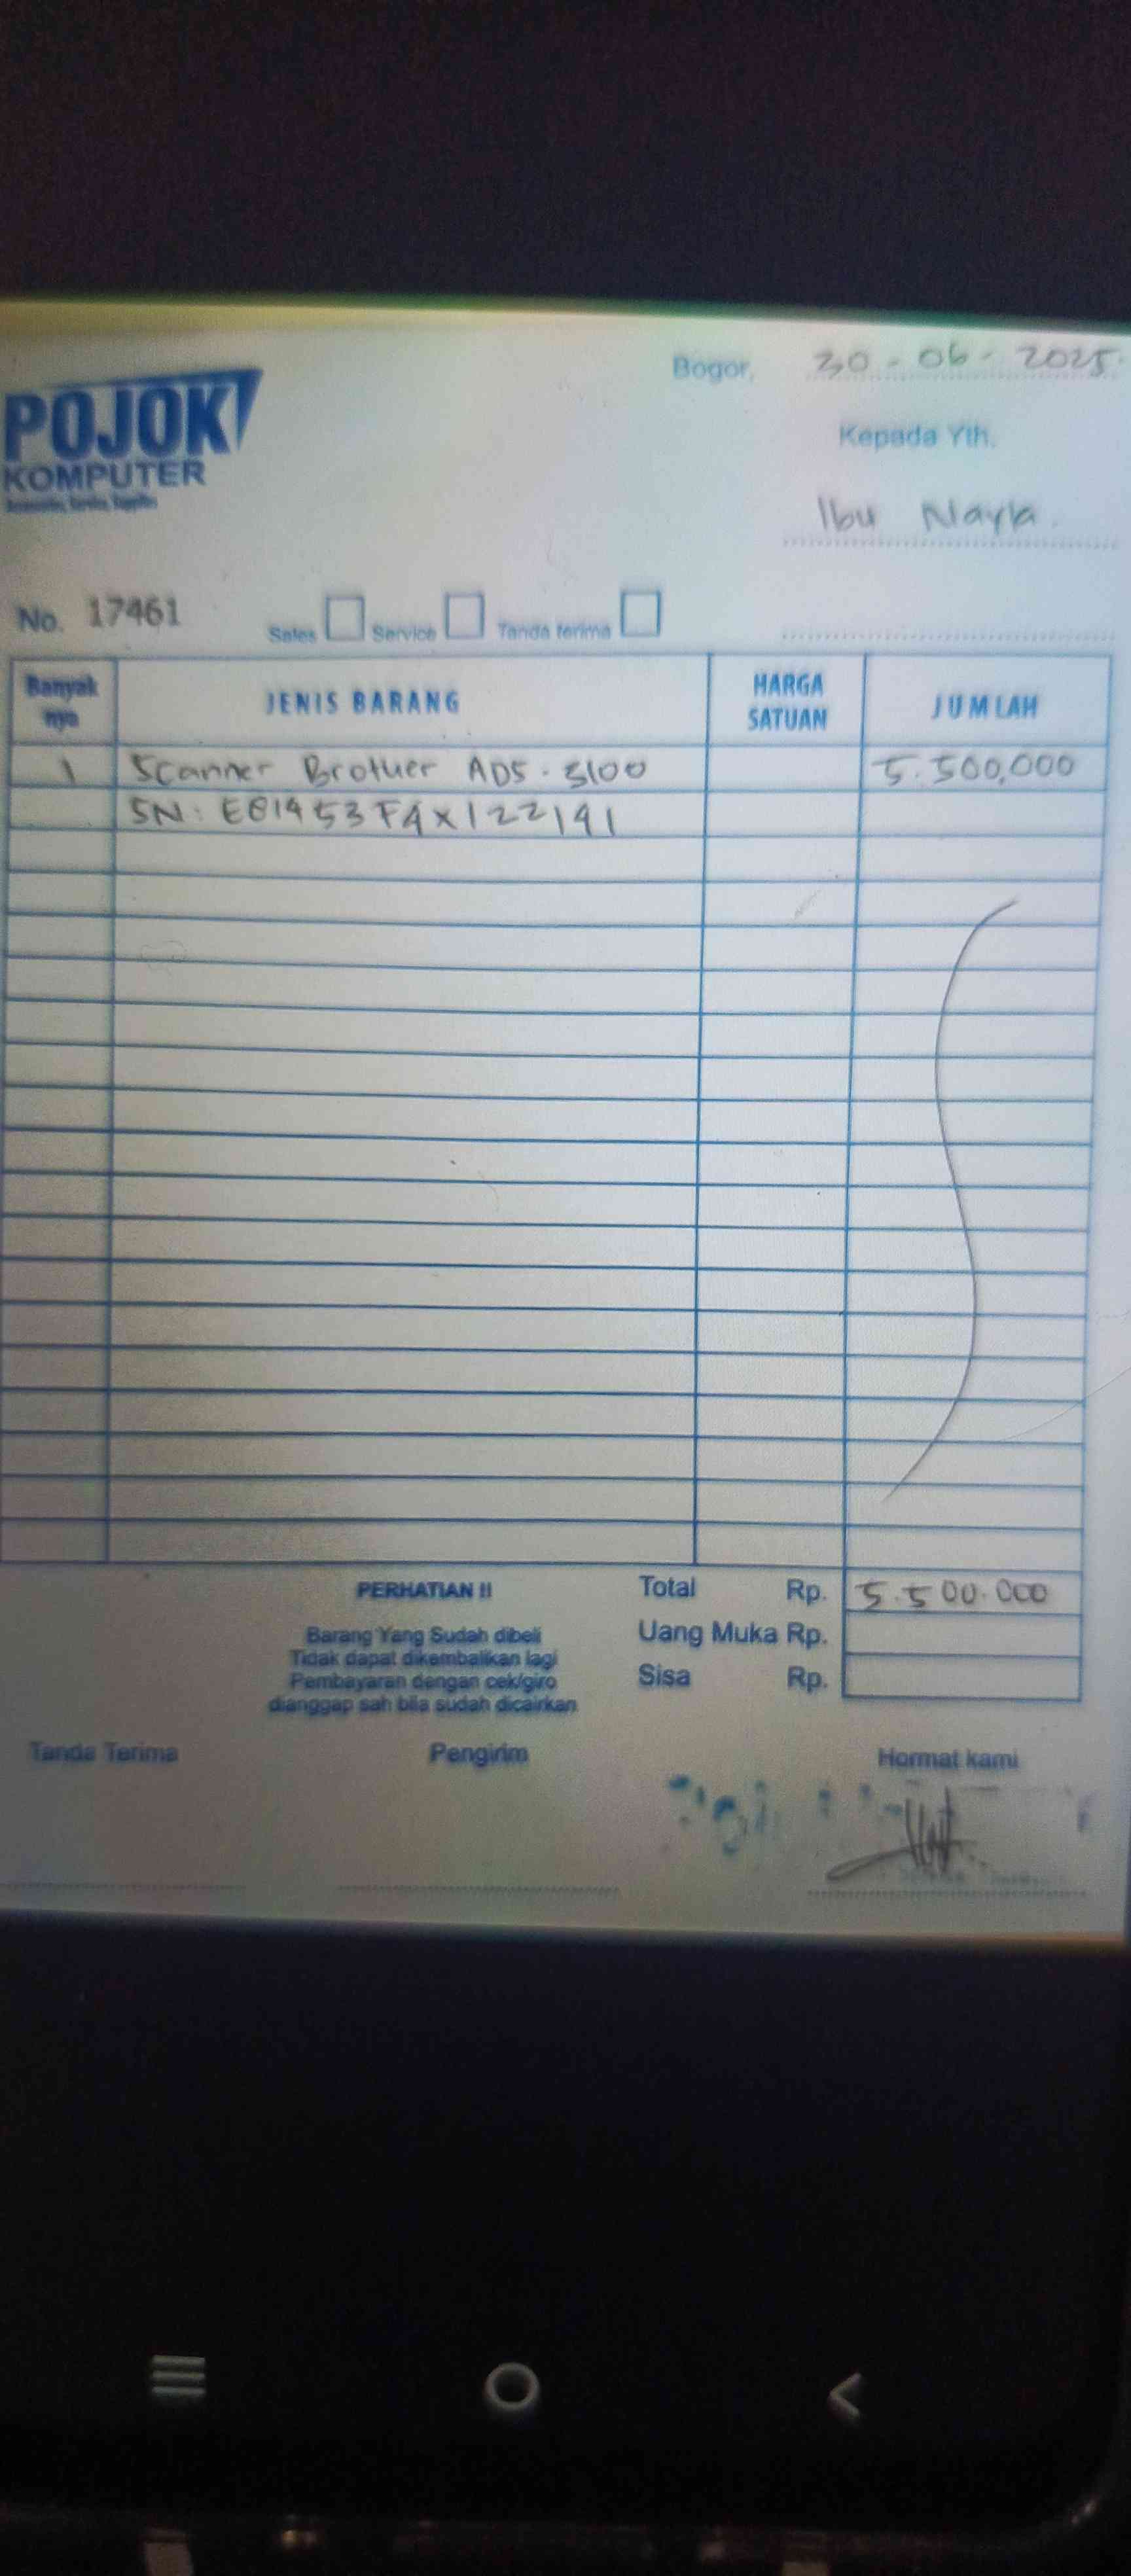 Bogor, 30-06-2025
POJOK
KOMPUTER
Kepada Yth.
Ibu Nayla.
No. 17461
Sales Service Tanda terima
Banyak nya JENIS BARANG HARGA SATUAN JUMLAH
1 Scanner Brother ADS-3100 5.500.000
SN: E81453F4X122141
PERHATIAN !!
Barang Yang Sudah dibeli
Tidak dapat dikembalikan lagi
Pembayaran dengan cek/giro
dianggap sah bila sudah dicairkan
Total Rp. 5.500.000
Uang Muka Rp.
Sisa Rp.
Tanda Terima Pengirim Hormat kami